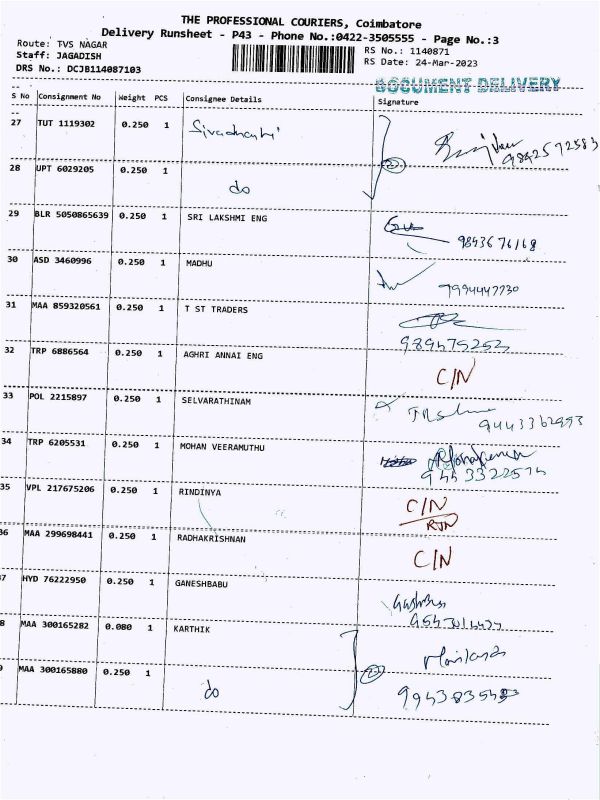 THE PROFESSIONAL COURIERS, Coimbatore
Delivery Runsheet - P43 - Phone No.:0422-3505555 - Page No.:3
Route: TVS NAGAR RS No.: 1140871
Staff: JAGADISH RS Date: 24-Mar-2023
DRS No.: DCJB114087103
DOCUMENT DELIVERY
S No Consignment No Weight PCS Consignee Details Signature
27 TUT 1119302 0.250 1
9842592583
28 UPT 6029205 0.250 1 do
29 BLR 5050865639 0.250 1 SRI LAKSHMI ENG
9843676168
30 ASD 3460996 0.250 1 MADHU
9994447730
31 MAA 859320561 0.250 1 T ST TRADERS
989475252
32 TRP 6886564 0.250 1 AGHRI ANNAI ENG C/N
33 POL 2215897 0.250 1 SELVARATHINAM
9443362993
34 TRP 6205531 0.250 1 MOHAN VEERAMUTHU
35 VPL 217675206 0.250 1 RINDINYA C/N
RTN
36 MAA 299698441 0.250 1 RADHAKRISHNAN C/N
37 HYD 76222950 0.250 1 GANESHBABU
8 MAA 300165282 0.080 1 KARTHIK
9 MAA 300165880 0.250 1 do